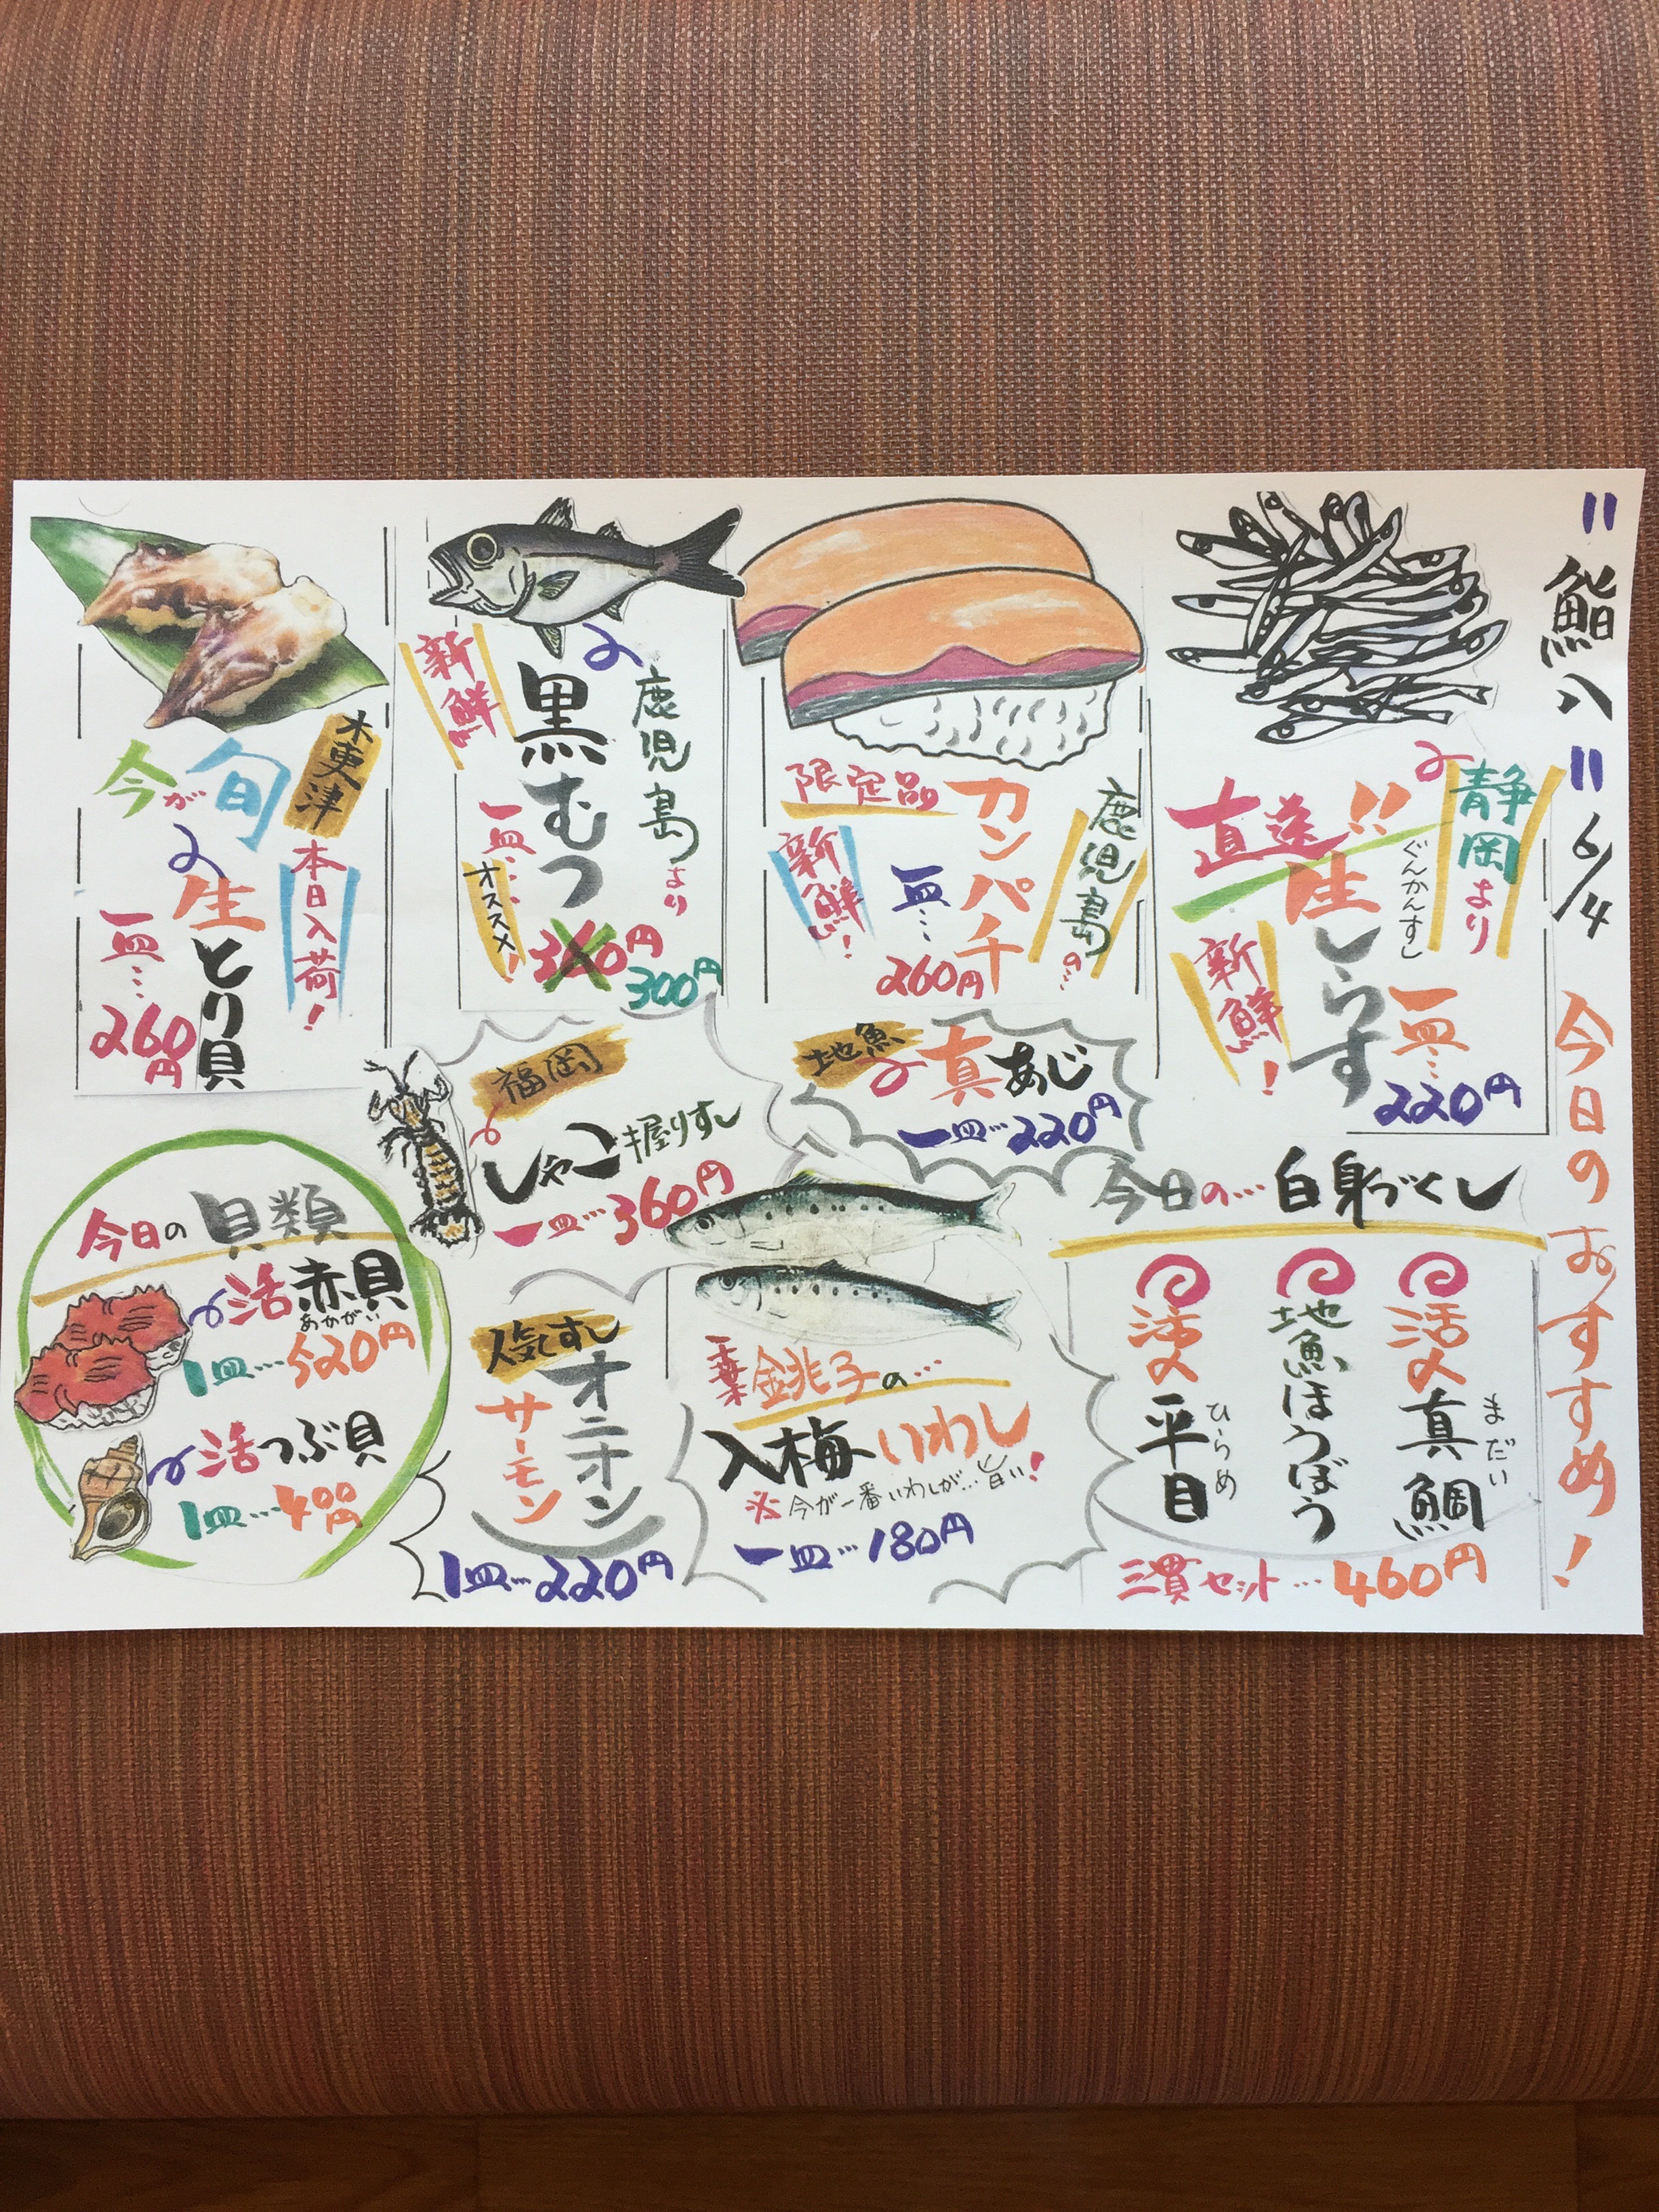 〃鮨八〃 6/4 今日のおすすめ!
静岡より
直送!!
ぐんかんすし
生しらす
新鮮!
一皿… 220円
鹿児島の…
カンパチ
限定品
新鮮!
一皿…
260円
鹿児島より
黒むつ
新鮮
一皿…
オススメ!
300円
木更津
今が旬の
本日入荷!
生とり貝
一皿…
260円
地魚の真あじ
一皿…220円
福岡の
しゃこ握りすし
一皿…360円
今日の…白身づくし
活〆真鯛
まだい
地魚ほうぼう
活〆平目
ひらめ
三貫セット…460円
千葉銚子の…
入梅いわし
※今が一番いわしが…旨い!
一皿…180円
人気すし
オニオン
サーモン
1皿…220円
今日の貝類
活赤貝
あかがい
1皿…520円
活つぶ貝
1皿…400円